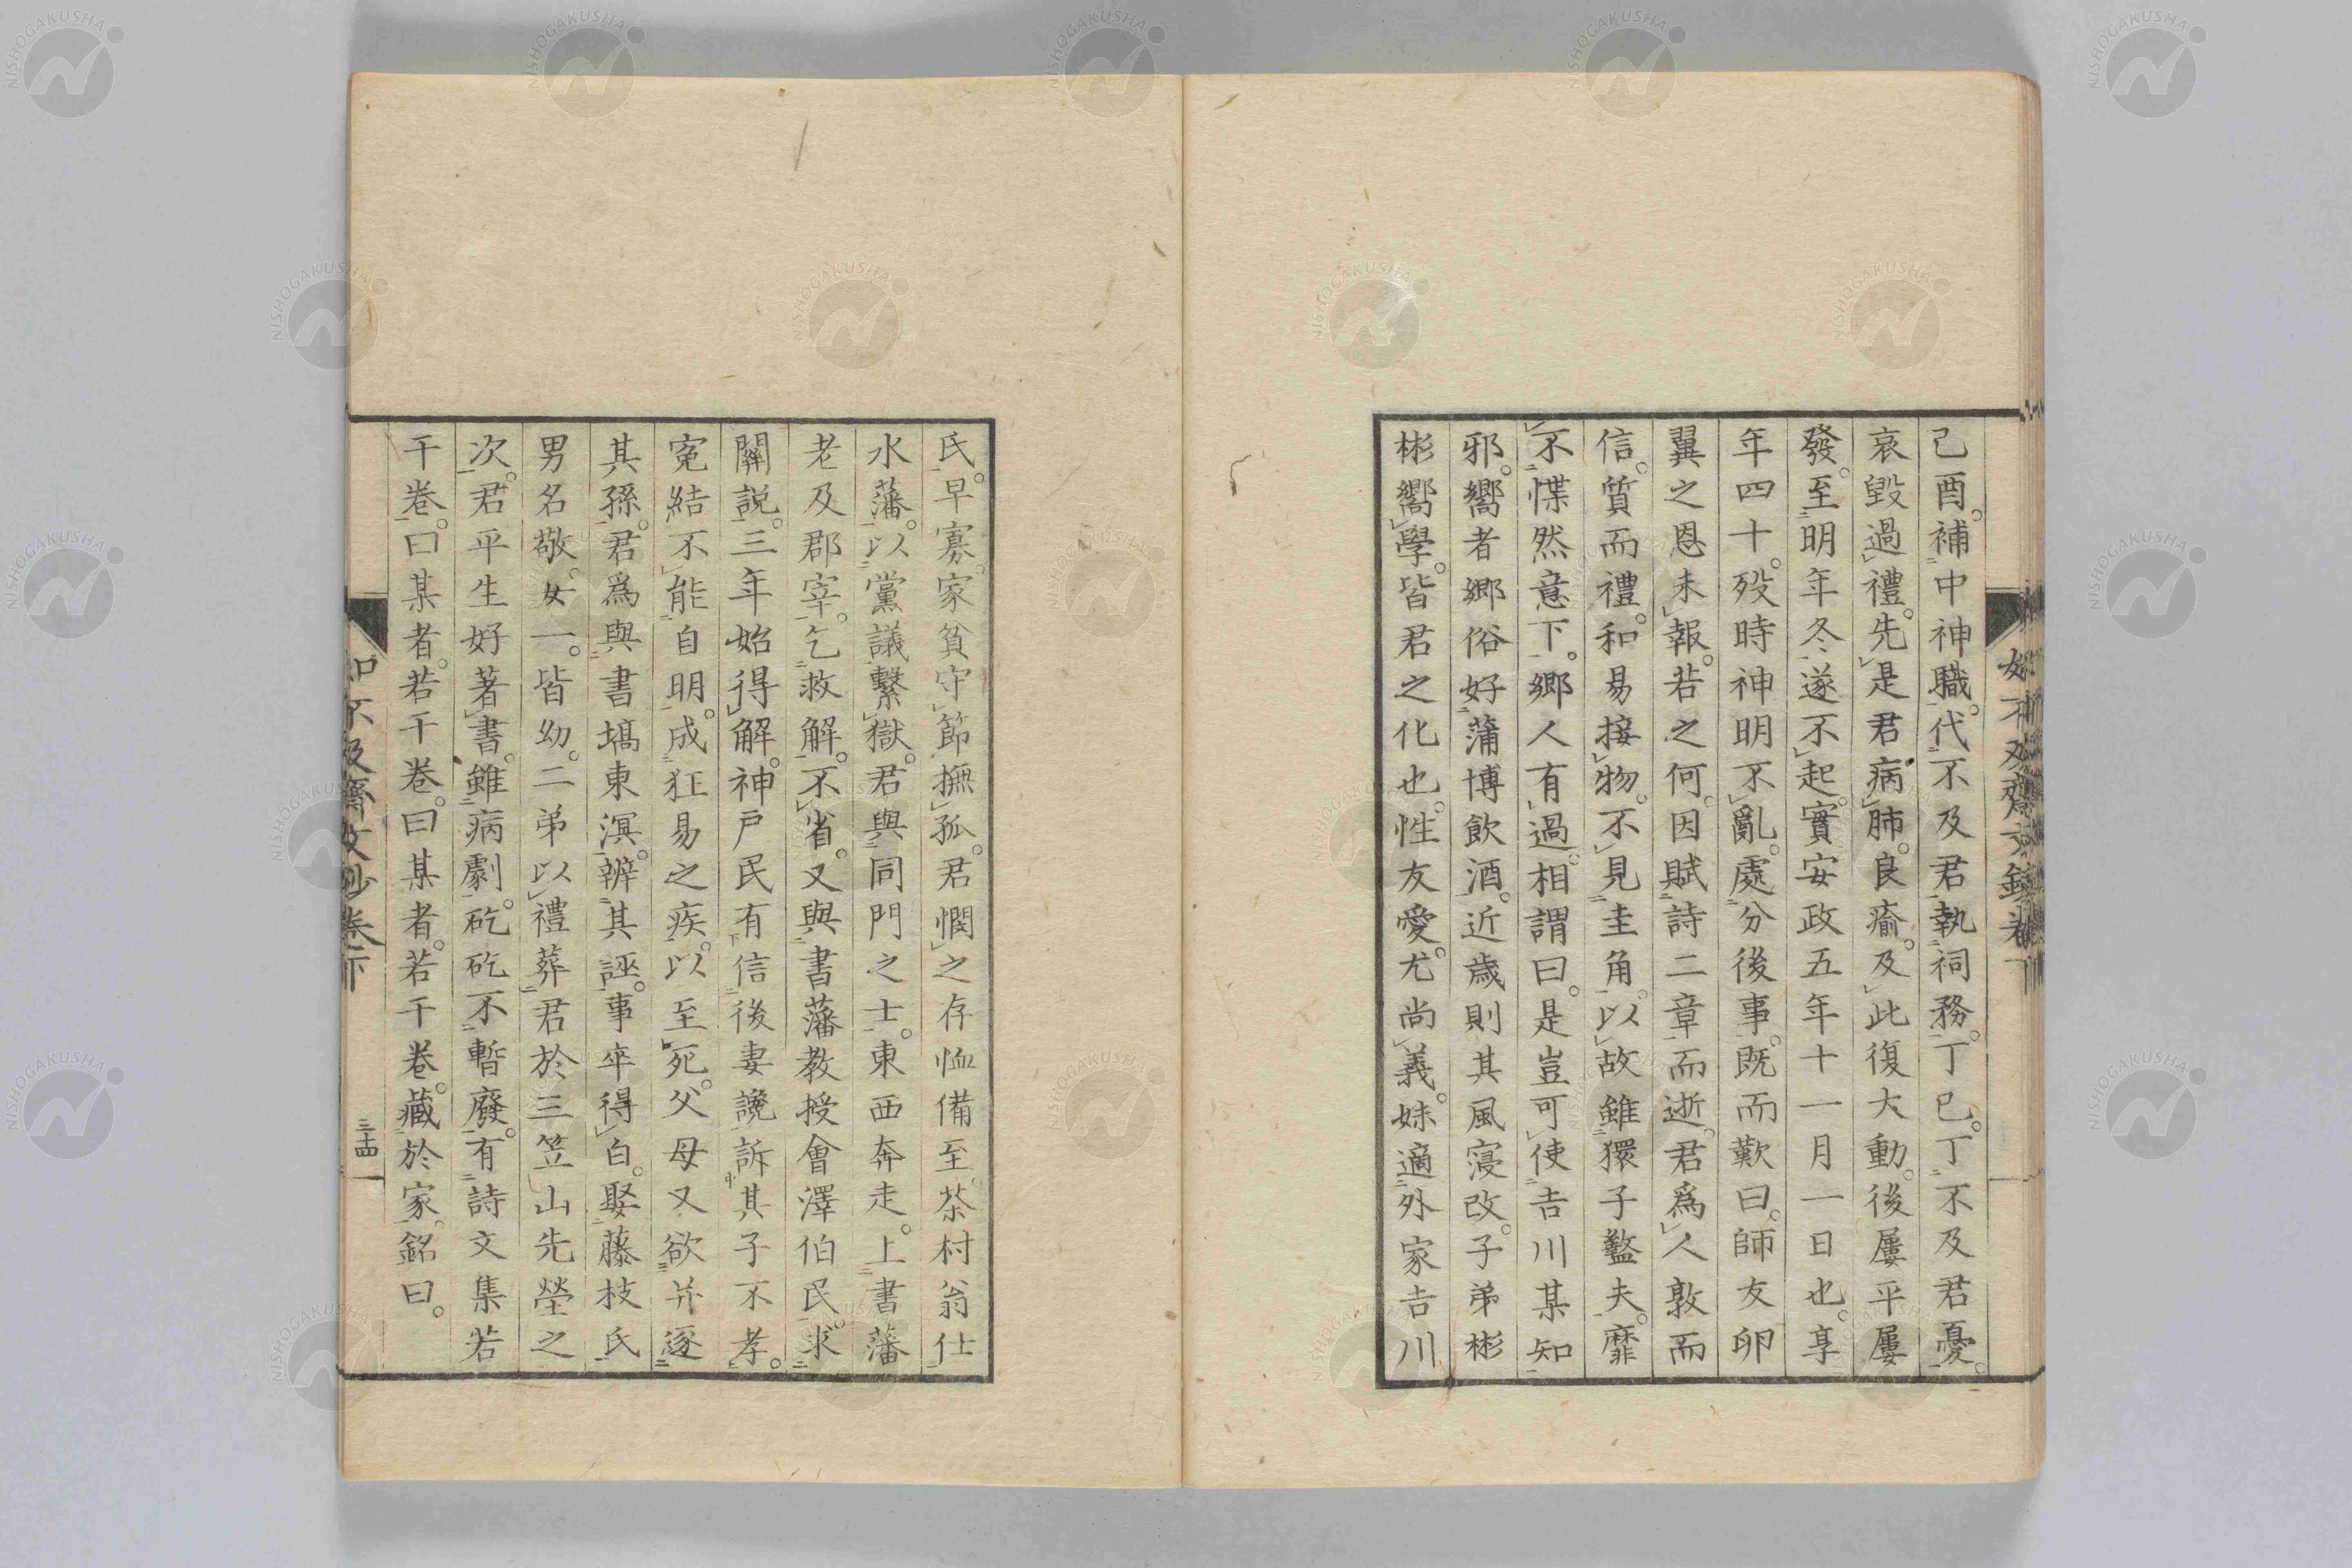 己酉。補中神職。代不及君執祠務。丁巳。丁不及君憂。
哀毀過禮。先是君病肺。良瘉。及此復大動。後屢平屢
發。至明年冬遂不起。實安政五年十一月一日也。享
年四十。歿時神明不亂。處分後事。既而歎曰。師友卵
翼之恩未報。若之何。因賦詩二章而逝。君爲人敦而
信。質而禮。和易接物。不見圭角。以故雖獧子盭夫。靡
不惵然意下。鄉人有過。相謂曰。是豈可使吉川某知
邪。嚮者鄉俗好蒲博飲酒。近歲則其風寖改。子弟彬
彬嚮學。皆君之化也。性友愛。尤尚義。妹適外家吉川
氏。早寡。家貧守節撫孤。君憫之存恤備至。茶村翁仕
水藩。以黨議繫獄。君與同門之士。東西奔走。上書藩
老及郡宰。乞救解。不省。又與書藩教授會澤伯民。求
關說。三年始得解。神戶民有信後妻讒訴其子不孝。
寃結不能自明。成狂易之疾。以至死。父母又欲并逐
其孫。君爲與書塙東溟。辨其誣。事卒得白。娶藤枝氏
男名敬。女一。皆幼。二弟以禮葬君於三笠山先塋之
次。君平生好著書。雖病劇。矻矻不暫廢。有詩文集若
干卷。曰某者。若干卷。曰某者。若干卷。藏於家。銘曰。
如不及齋文鈔卷下
三十四